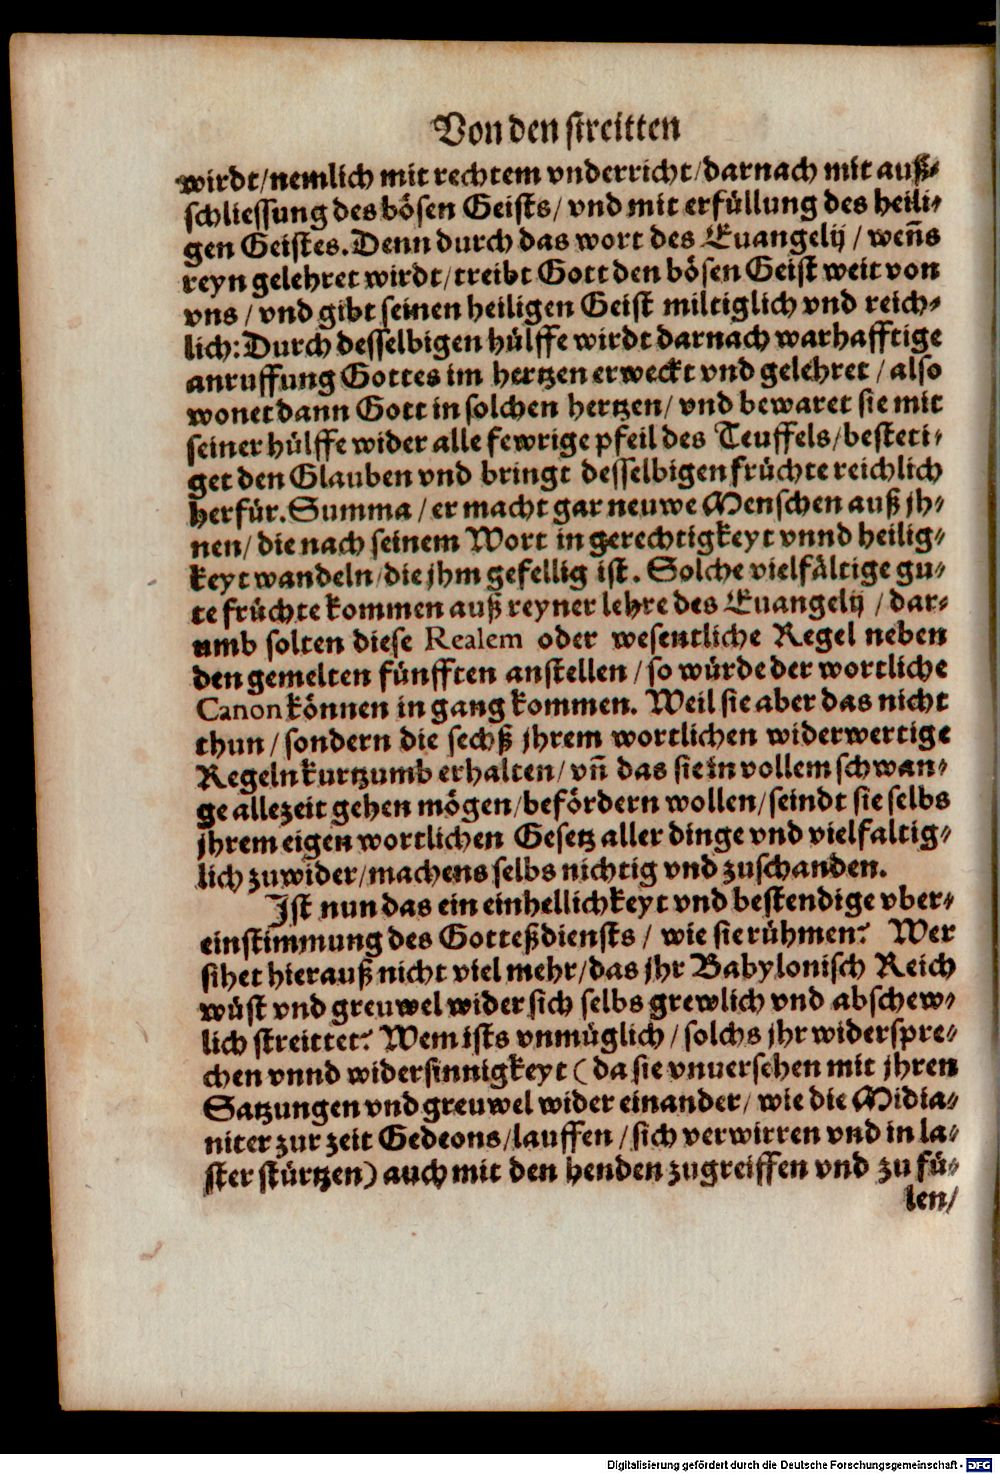 Von den streitten
wirdt/nemlich mit rechtem vnderricht/darnach mit auß-
schliessung des bösen Geists/ vnd mit erfüllung des heili-
gen Geistes. Denn durch das wort des Euangelij / weñs
reyn gelehret wirdt/treibt Gott den bösen Geist weit von
vns / vnd gibt seinen heiligen Geist miltiglich vnd reich-
lich: Durch desselbigen hülffe wirdt darnach warhafftige
anruffung Gottes im hertzen erweckt vnd gelehret / also
wonet dann Gott in solchen hertzen/ vnd bewaret sie mit
seiner hülffe wider alle fewrige pfeil des Teuffels/besteti-
get den Glauben vnd bringt desselbigen früchte reichlich
herfür. Summa / er macht gar neuwe Menschen auß jh-
nen/ die nach seinem Wort in gerechtigkeyt vnnd heilig-
keyt wandeln/die jhm gefellig ist. Solche vielfältige gu-
te früchte kommen auß reyner lehre des Euangelij / dar-
umb solten diese Realem oder wesentliche Regel neben
den gemelten fünfften anstellen / so würde der wortliche
Canon können in gang kommen. Weil sie aber das nicht
thun / sondern die sechß jhrem wortlichen widerwertige
Regeln kurtzumb erhalten/ vñ das sie in vollem schwan-
ge allezeit gehen mögen/befördern wollen/seindt sie selbs
jhrem eigen wortlichen Gesetz aller dinge vnd vielfaltig-
lich zuwider/machens selbs nichtig vnd zuschanden.
Ist nun das ein einhellichkeyt vnd bestendige vber-
einstimmung des Gotteßdiensts / wie sie rühmen? Wer
sihet hierauß nicht viel mehr/das jhr Babylonisch Reich
wüst vnd greuwel wider sich selbs grewlich vnd abschew-
lich streittet? Wem ists vnmüglich / solchs jhr widerspre-
chen vnnd widersinnigkeyt (da sie vnuersehen mit jhren
Satzungen vnd greuwel wider einander/ wie die Midia-
niter zur zeit Gedeons/lauffen / sich verwirren vnd in la-
ster stürtzen) auch mit den henden zugreiffen vnd zu fü-
len/
Digitalisierung gefördert durch die Deutsche Forschungsgemeinschaft - DFG